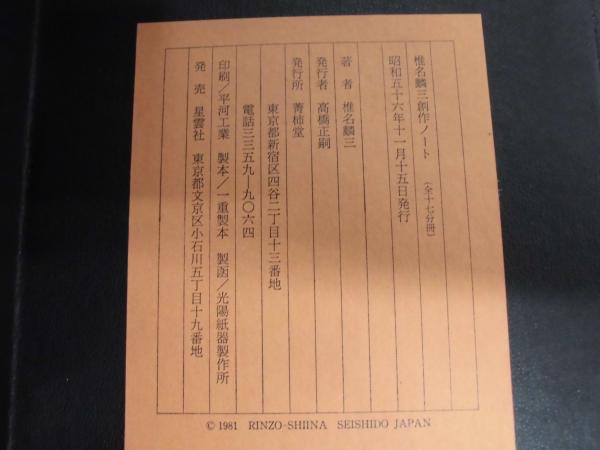 椎名麟三創作ノート (全十七分冊)
昭和五十六年十一月十五日発行
著者 椎名麟三
発行者 高橋正嗣
発行所 菁柿堂
東京都新宿区四谷二丁目十三番地
電話三三五九―九〇六四
印刷/平河工業 製本/一重製本 製函/光陽紙器製作所
発売 星雲社 東京都文京区小石川五丁目十九番地
© 1981 RINZO-SHIINA SEISHIDO JAPAN